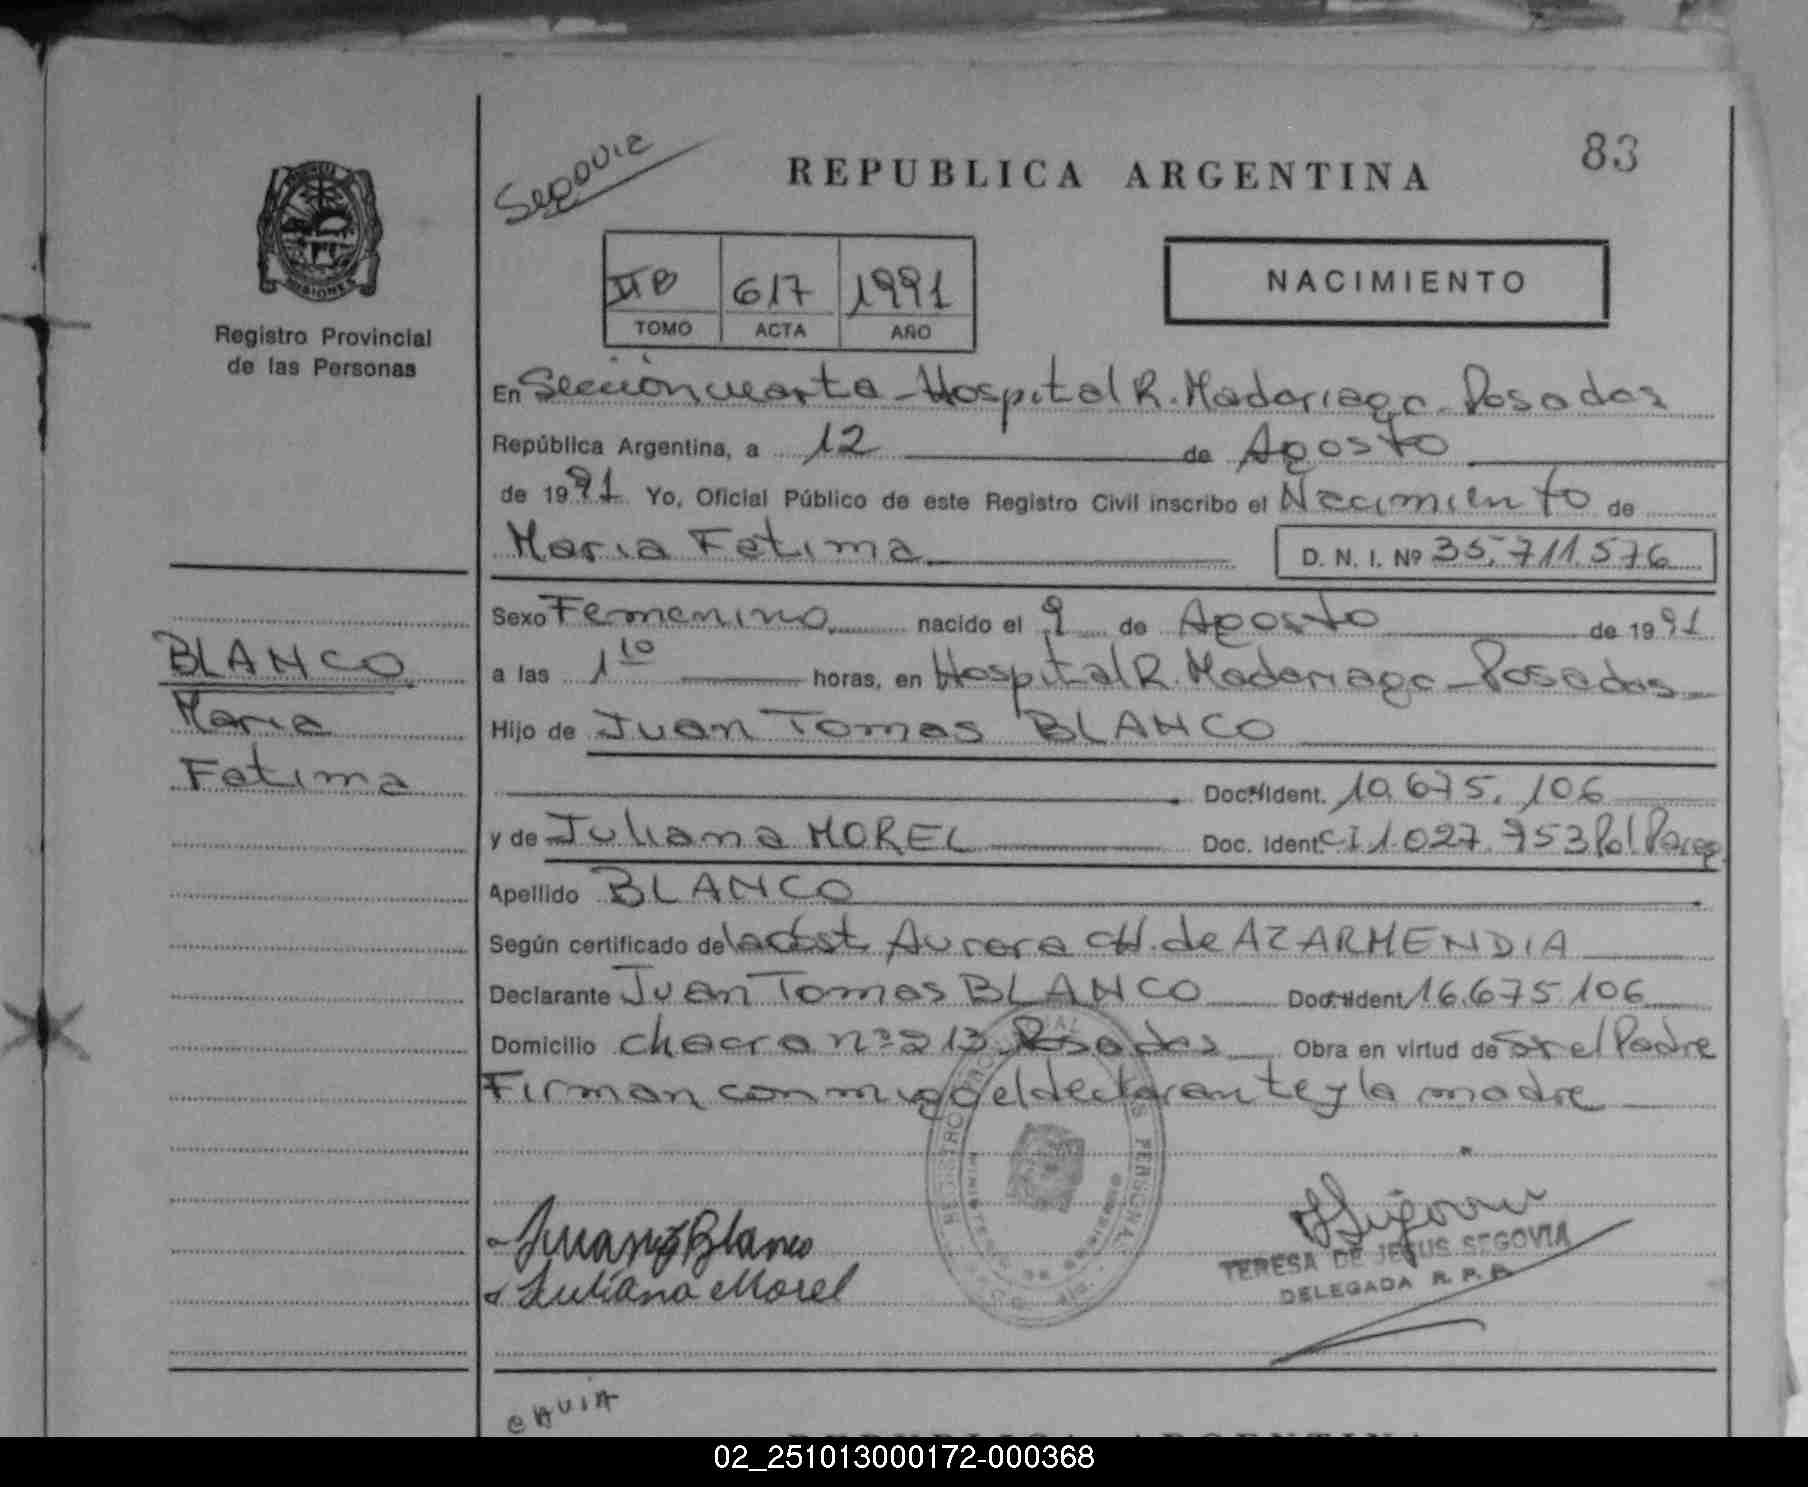 Segovia
REPUBLICA ARGENTINA
83
IIB 617 1991
TOMO ACTA AÑO
NACIMIENTO
MISIONES
Registro Provincial
de las Personas
En Sección cuarta - Hospital R. Madariaga - Posadas
República Argentina, a 12 de Agosto
de 1991 Yo, Oficial Público de este Registro Civil inscribo el Nacimiento de
Maria Fatima D. N. I. Nº 35.711.576
Sexo Femenino nacido el 9 de Agosto de 1991
a las 1 10 horas, en Hospital R. Madariaga - Posadas
Hijo de Juan Tomas BLANCO
Doc. Ident. 10.675.106
y de Juliana MOREL Doc. Ident. CI 1.027.953 Pol Parag
Apellido BLANCO
Según certificado de la obst. Aurora CH. de AZARMENDIA
Declarante Juan Tomas BLANCO Doc. Ident 16.675.106
Domicilio chacra nº 213 Posadas Obra en virtud de ser el Padre
Firman conmigo el declarante y la madre
BLANCO
Maria
Fatima
Juan T Blanco
Juliana Morel
TERESA DE JESUS SEGOVIA
DELEGADA R. P. P.
REPUBLICA ARGENTINA
02_251013000172-000368